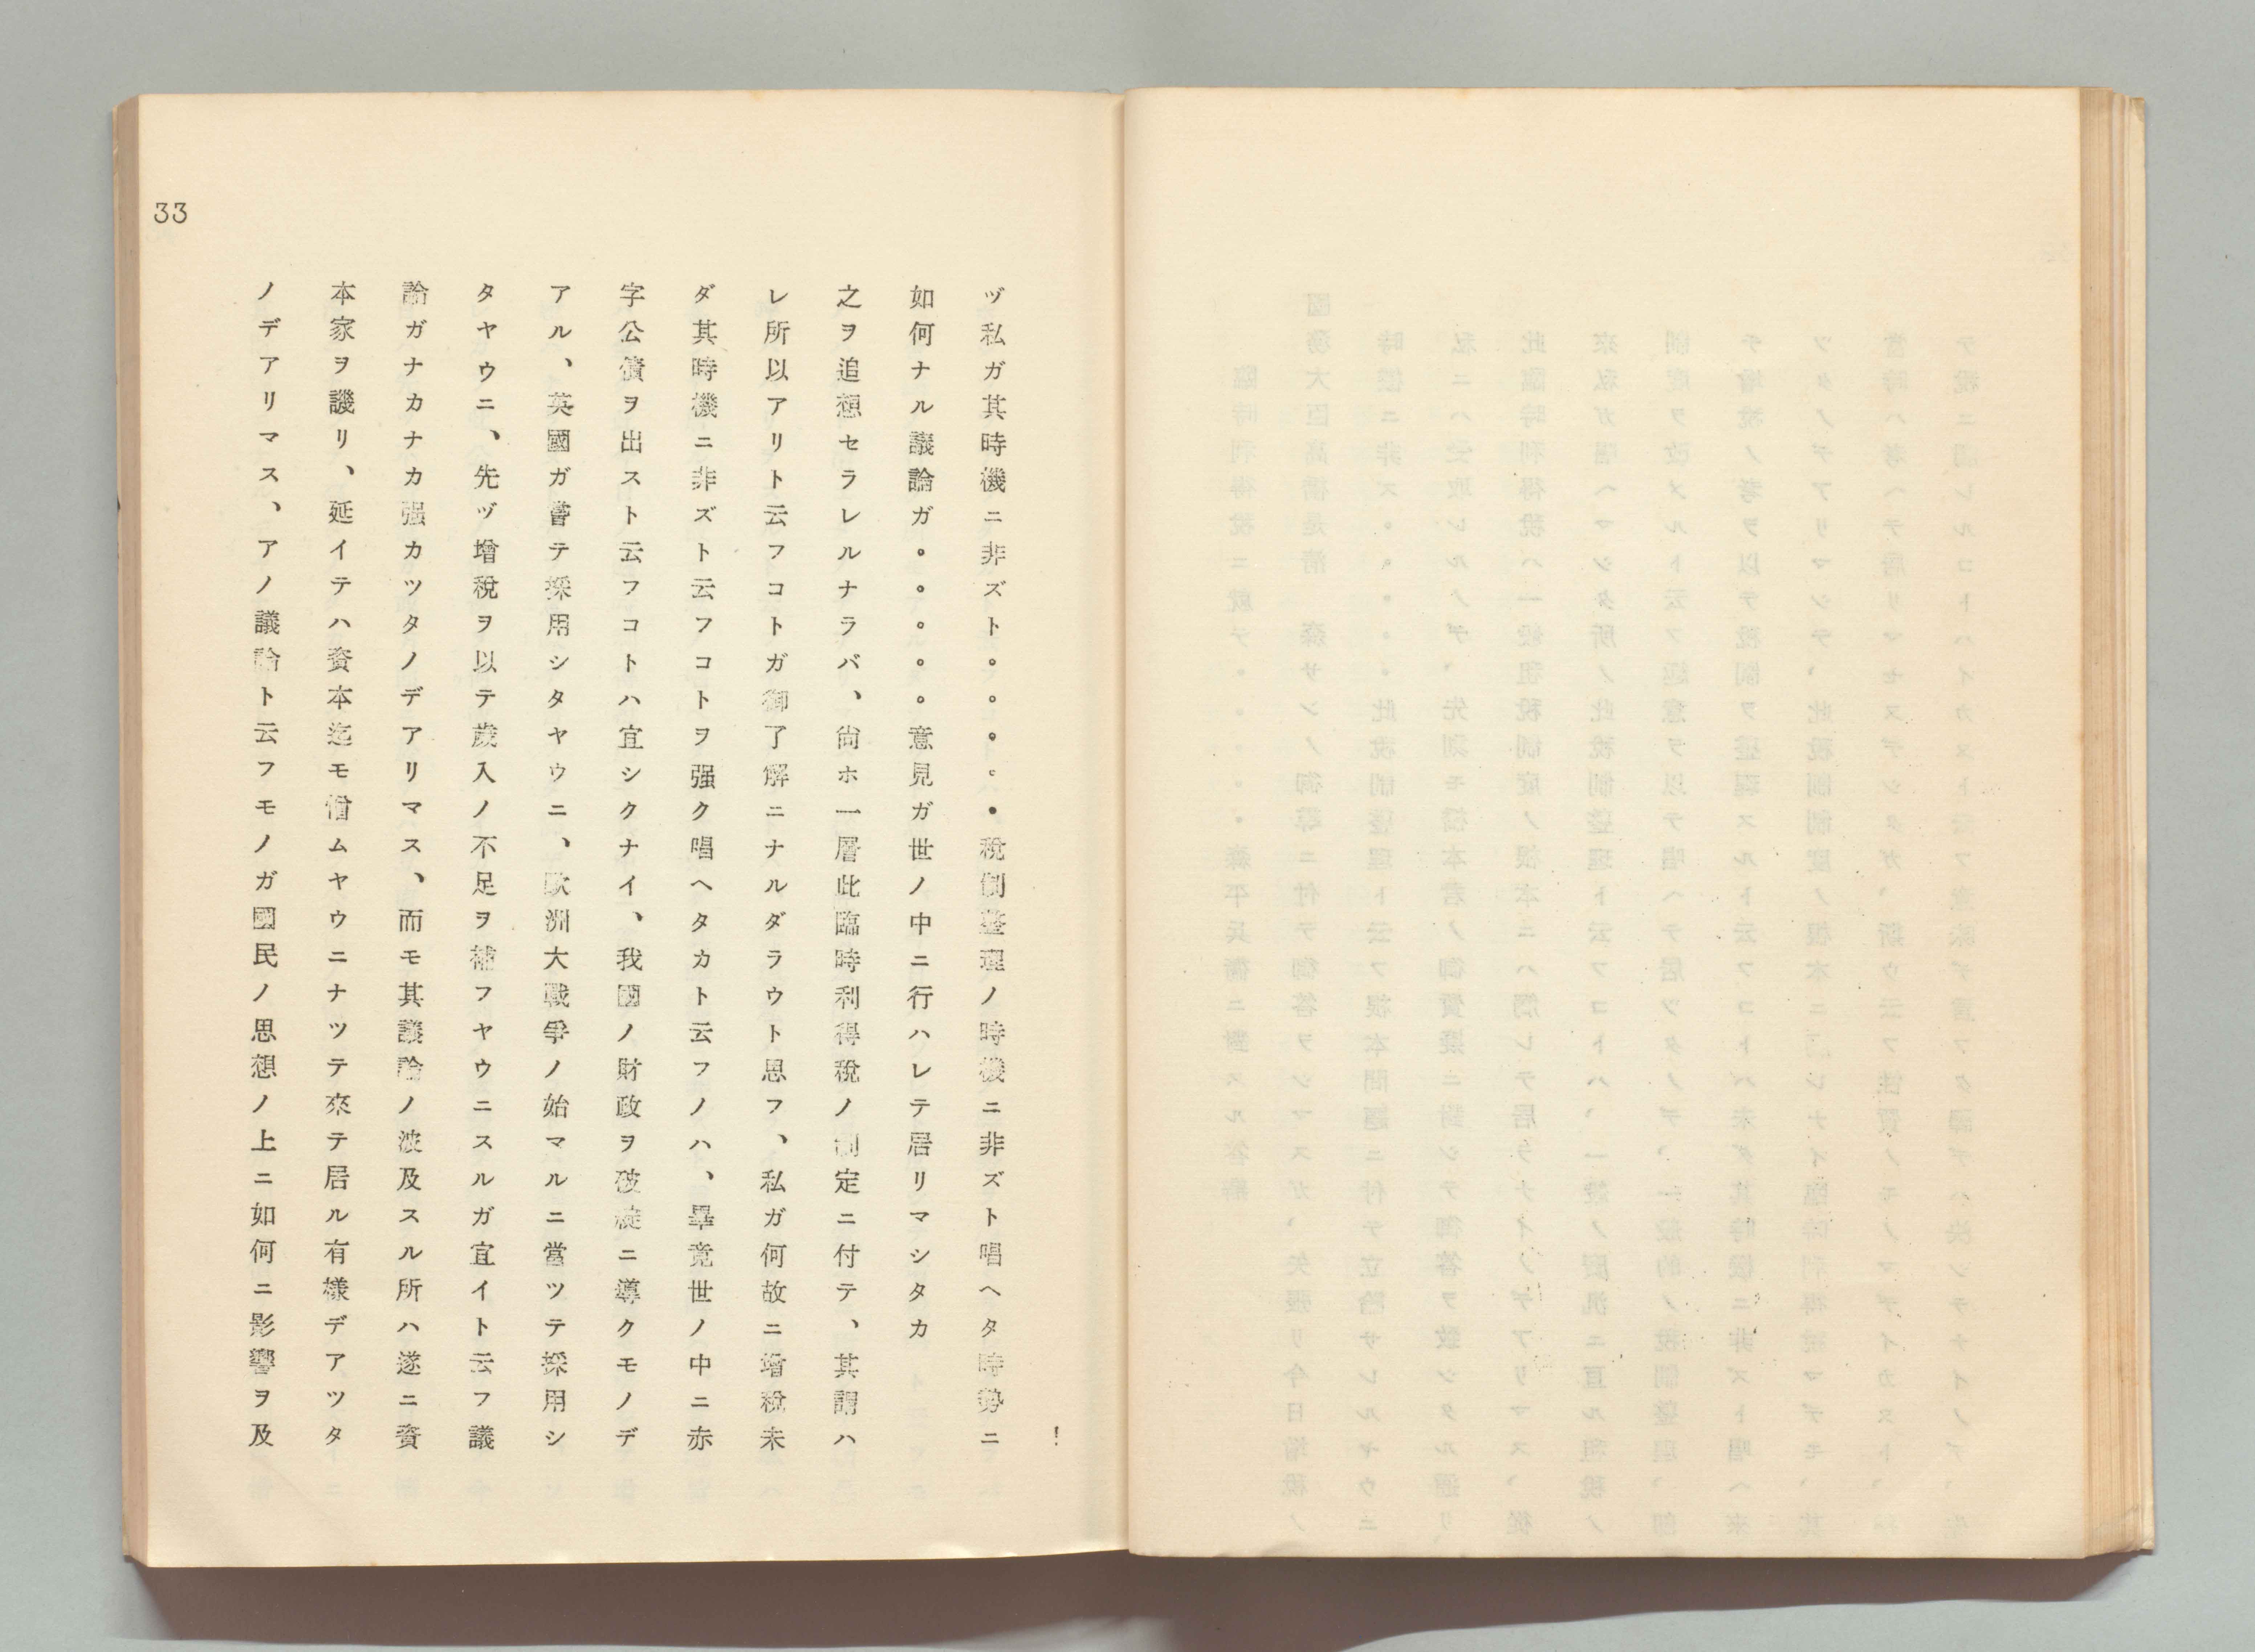 ヅ私ガ其時機ニ非ズト。。。。。税制整理ノ時機ニ非ズト唱ヘタ時勢ニ
如何ナル議論ガ。。。。。意見ガ世ノ中ニ行ハレテ居リマシタカ
之ヲ追想セラレルナラバ、尙ホ一層此臨時利得税ノ制定ニ付テ、其謂ハ
レ所以アリト云フコトガ御了解ニナルダラウト思フ、私ガ何故ニ增税未
ダ其時機ニ非ズト云フコトヲ强ク唱ヘタカト云フノハ、畢竟世ノ中ニ赤
字公債ヲ出スト云フコトハ宜シクナイ、我國ノ財政ヲ破綻ニ導クモノデ
アル、英國ガ嘗テ採用シタヤウニ、歐洲大戰爭ノ始マルニ當ツテ採用シ
タヤウニ、先ヅ增税ヲ以テ歲入ノ不足ヲ補フヤウニスルガ宜イト云フ議
論ガナカナカ强カツタノデアリマス、而モ其議論ノ波及スル所ハ遂ニ資
本家ヲ譏リ、延イテハ資本迄モ憎ムヤウニナツテ來テ居ル有樣デアツタ
ノデアリマス、アノ議論ト云フモノガ國民ノ思想ノ上ニ如何ニ影響ヲ及
33